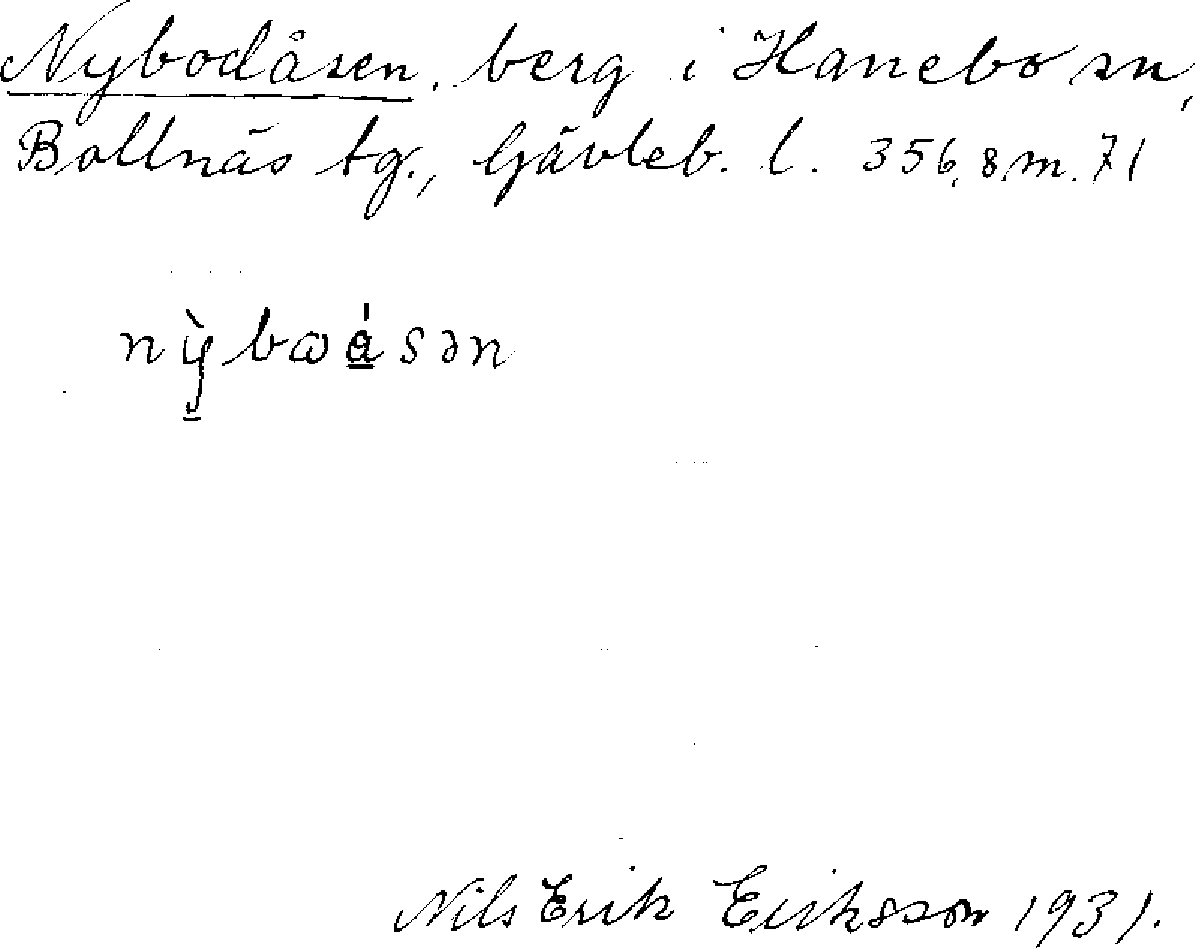 Nybodåsen, berg i Hanebo sn,
Bollnäs tg., Gävleb. l. 356,8 m. 71
nỳ̠bωá̠sən
Nils Erik Eriksson 1931.